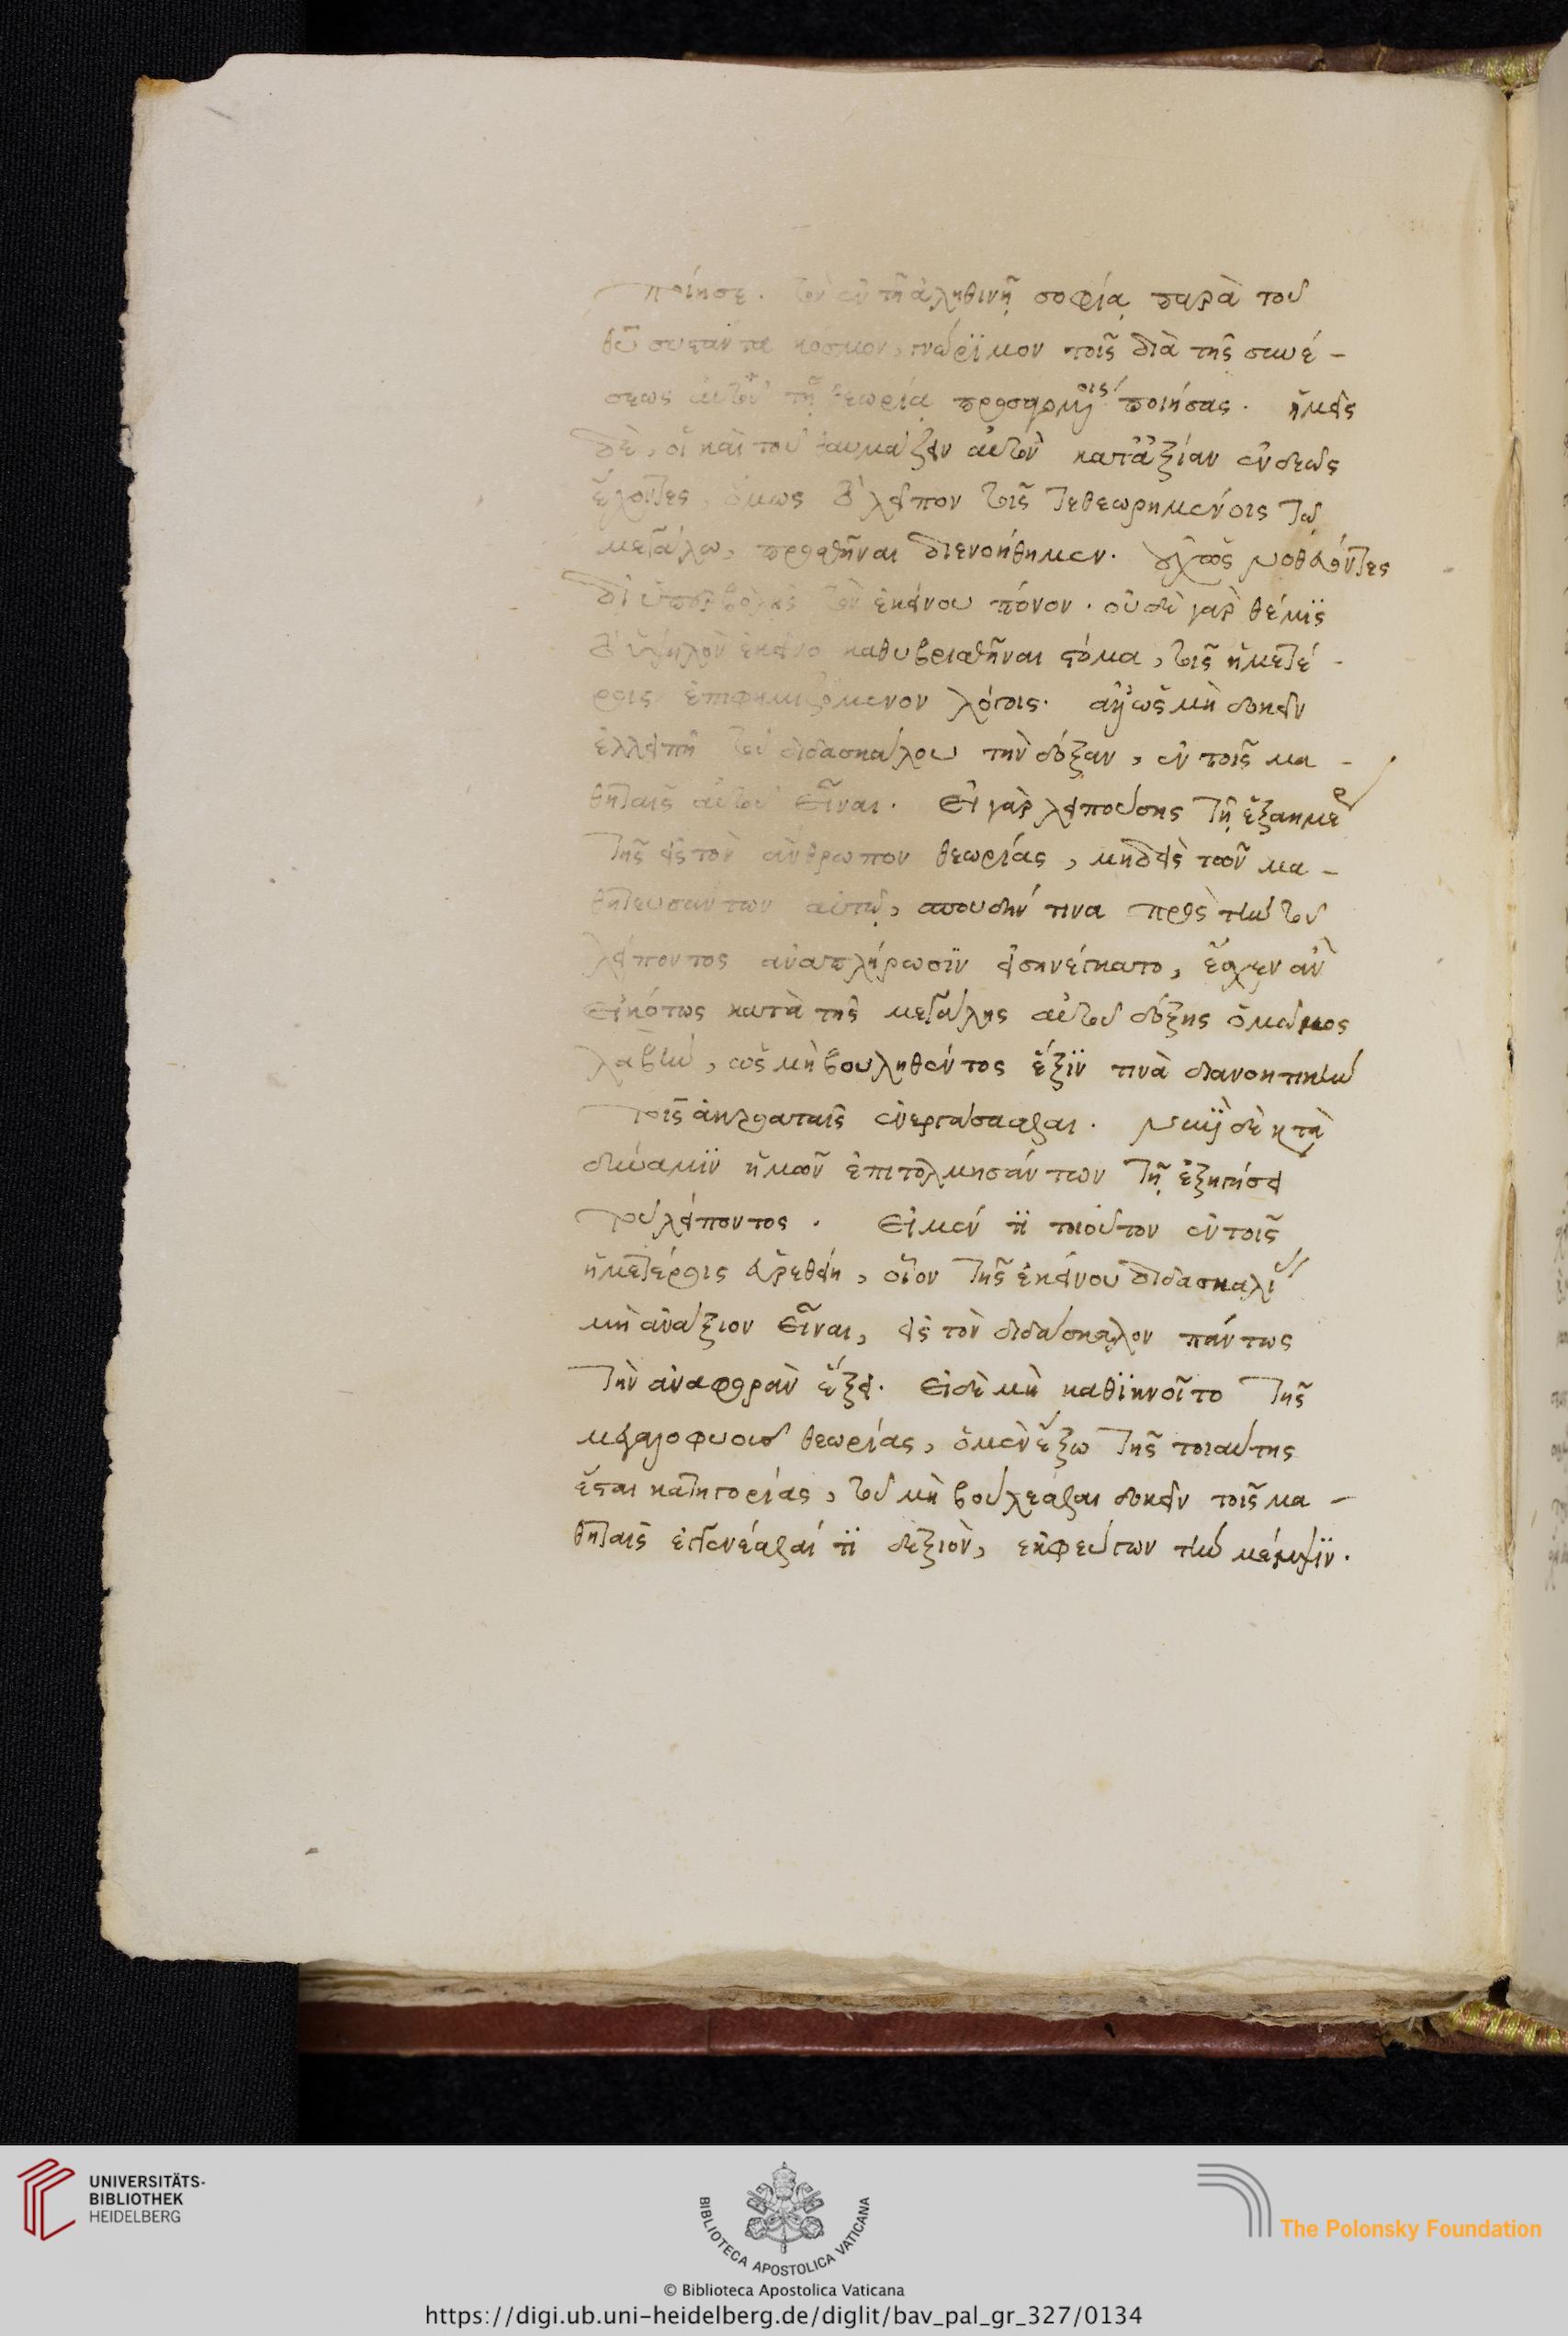 ποίησε. τὸν ἐν τῆ ἀληθινῆ σοφία παρὰ τοῦ
θῦ συστάντα κόσμον, γνώριμον τοῖς διὰ τῆς συνέ-
σεως αὐτοῦ τῆ θεωρία προσαγομένοις ποιήσας. ἡμεῖς
δὲ, οἱ καὶ τοῦ θαυμάζειν αὐτὸν κατ' ἀξίαν ἐνδεῶς
ἔχοντες, ὅμως τὸ λεῖπον τοῖς τεθεωρημένοις τῶ
μεγάλω, προσθῆναι διενοήθημεν. οὐχ ὡς νοθεύοντες
δι' ὑποβολῆς τὸν ἐκείνου πόνον. οὐδὲ γὰρ θέμις
τὸ ὑψηλὸν ἐκεῖνο καθυβρισθῆναι στόμα, τοῖς ἡμετέ-
ροις ἐπιφημιζόμενον λόγοις. ἀλλ' ὡς μὴ δοκεῖν
ἐλλειπῆ τοῦ διδασκάλου τὴν δόξαν, ἐν τοῖς μα-
θηταῖς αὐτοῦ εἶναι. Εἰ γὰρ λειπούσης τῆ ἑξαημέρω
τῆς εἰς τὸν ἄνθρωπον θεωρίας, μηδεὶς τῶν μα-
θητευσάντων αὐτῶ, σπουδήν τινα πρὸς τὴν τοῦ
λείποντος ἀναπλήρωσιν εἰσηνέγκατο, ἔσχεν ἂν
εἰκότως κατὰ τῆς μεγάλης αὐτοῦ δόξης ὁ μῶμος
λαβὴν, ὡς μὴ βουληθέντος ἕξιν τινὰ διανοητικὴν
τοῖς ἀκροαταῖς ἐνεργάσασθαι. Νυνὶ δὲ κατὰ
δύναμιν ἡμῶν ἐπιτολμησάντων τῆ ἐξηγήσει
τοῦ λείποντος. Εἰ μέν τι τοιοῦτον ἐν τοῖς
ἡμετέροις εὑρεθείη, οἷον τῆς ἐκείνου διδασκαλίας
μὴ ἀνάξιον εἶναι, εἰς τὸν διδάσκαλον πάντως
τὴν ἀναφορὰν ἕξει. Εἰ δὲ μὴ καθικνοῖτο τῆς
μεγαλοφυοῦς θεωρίας, ὁ μὲν ἔξω τῆς τοιαύτης
ἔσται κατηγορίας, τοῦ μὴ βούλεσθαι δοκεῖν τοῖς μα-
θηταῖς ἐγγενέσθαι τι δεξιὸν, ἐκφεύγων τὴν μέμψιν.
UNIVERSITÄTS-
BIBLIOTHEK
HEIDELBERG
BIBLIOTECA APOSTOLICA VATICANA
© Biblioteca Apostolica Vaticana
The Polonsky Foundation
https://digi.ub.uni-heidelberg.de/diglit/bav_pal_gr_327/0134